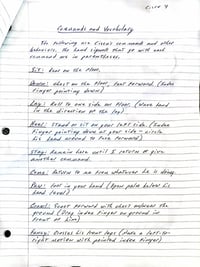 Cisco 4
Commands and Vocabulary
The following are Cisco's commands and other
behaviors. The hand signals that go with each
command are in parentheses.
Sit: Rear on the floor.
Down: Chest on the floor, feet forward. (Index
finger pointing down)
Lay: Roll to one side on floor. (Wave hand
in the direction of the lay)
Heel: Stand or sit on your left side. (Index
finger pointing down at your side - circle
his hand around to face forward)
Stay: Remain here until I return or give
another command.
Come: Return to me from whatever he is doing.
Paw: Foot in your hand (Open palm below his
head level)
Crawl: Scoot forward with chest against the
ground (Drag index finger on ground in
front of him)
Crosses his front legs (Make a left-to-
right motion with pointed index finger)